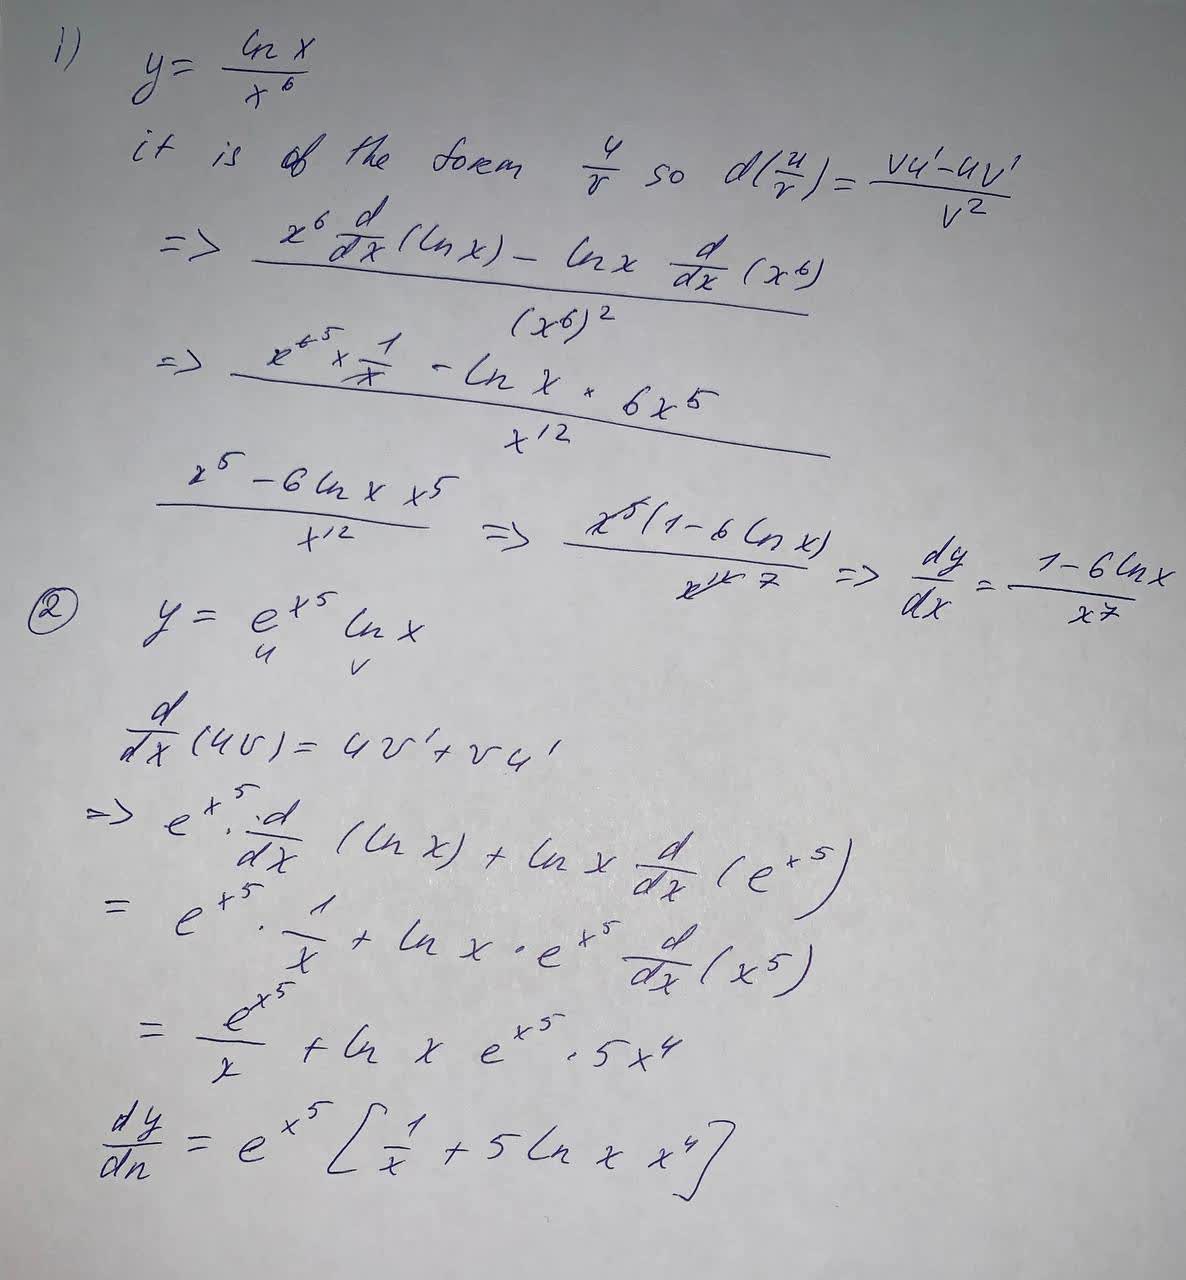 1) y = ln x / x^6
it is of the form u/v so d(u/v) = (vu' - uv') / v^2
=> (x^6 d/dx (ln x) - ln x d/dx (x^6)) / (x^6)^2
=> (x^6 5 × 1/x - ln x · 6x^5) / x^12
(x^5 - 6 ln x x^5) / x^12 => x^5 (1 - 6 ln x) / x^12 7 => dy/dx = (1 - 6 ln x) / x^7
② y = e^x^5 ln x
u v
d/dx (uv) = uv' + vu'
=> e^x^5 · d/dx (ln x) + ln x d/dx (e^x^5)
= e^x^5 · 1/x + ln x · e^x^5 d/dx (x^5)
= e^x^5 / x + ln x e^x^5 · 5x^4
dy/dn = e^x^5 [1/x + 5 ln x x^4]